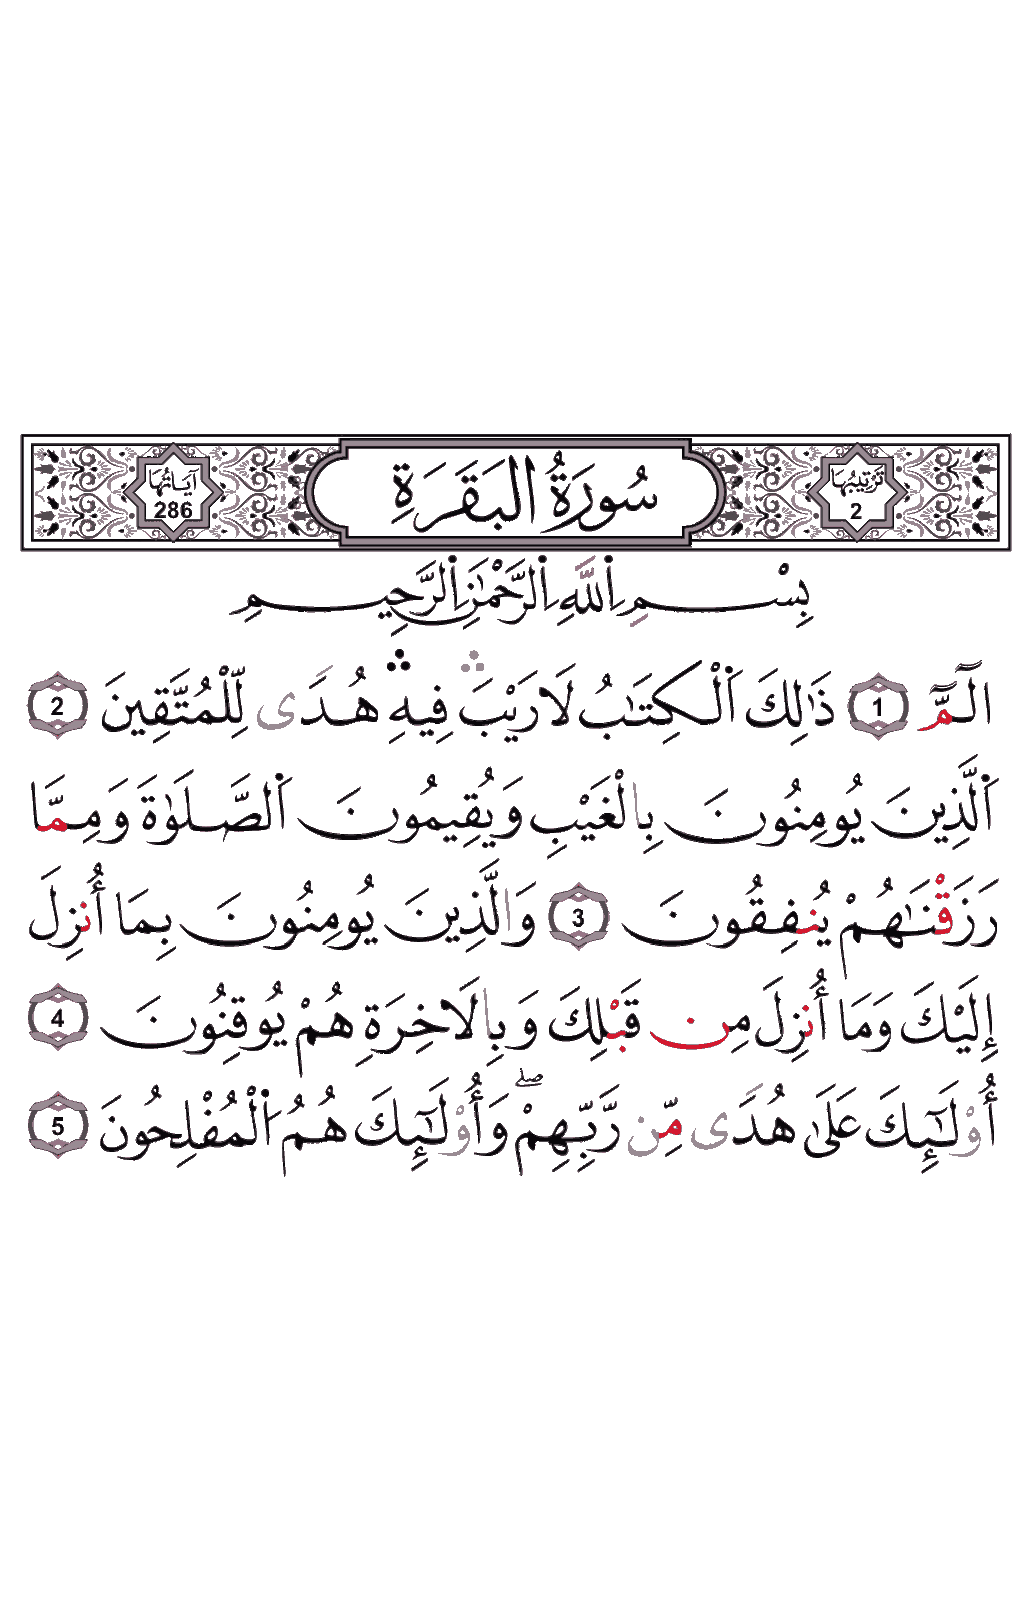 ترتيبها 2
سُورَةُ البَقَرَةِ
آياتها 286
بِسْمِ اِ۬للَّهِ اِ۬لرَّحْمَٰنِ اِ۬لرَّحِيمِ
الٓمِّٓ 1 ذَٰلِكَ اَ۬لْكِتَٰبُ لَا رَيْبَ ۛ فِيهِ ۛ هُدًى لِّلْمُتَّقِينَ 2
اَ۬لَّذِينَ يُومِنُونَ بِالْغَيْبِ وَيُقِيمُونَ اَ۬لصَّلَوٰةَ وَمِمَّا
رَزَقْنَٰهُمْ يُنفِقُونَ 3 وَالَّذِينَ يُومِنُونَ بِمَا أُنزِلَ
إِلَيْكَ وَمَا أُنزِلَ مِن قَبْلِكَ وَبِالَاخِرَةِ هُمْ يُوقِنُونَ 4
أُوْلَٰٓئِكَ عَلَىٰ هُدًى مِّن رَّبِّهِمْ ۖ وَأُوْلَٰٓئِكَ هُمُ اُ۬لْمُفْلِحُونَ 5